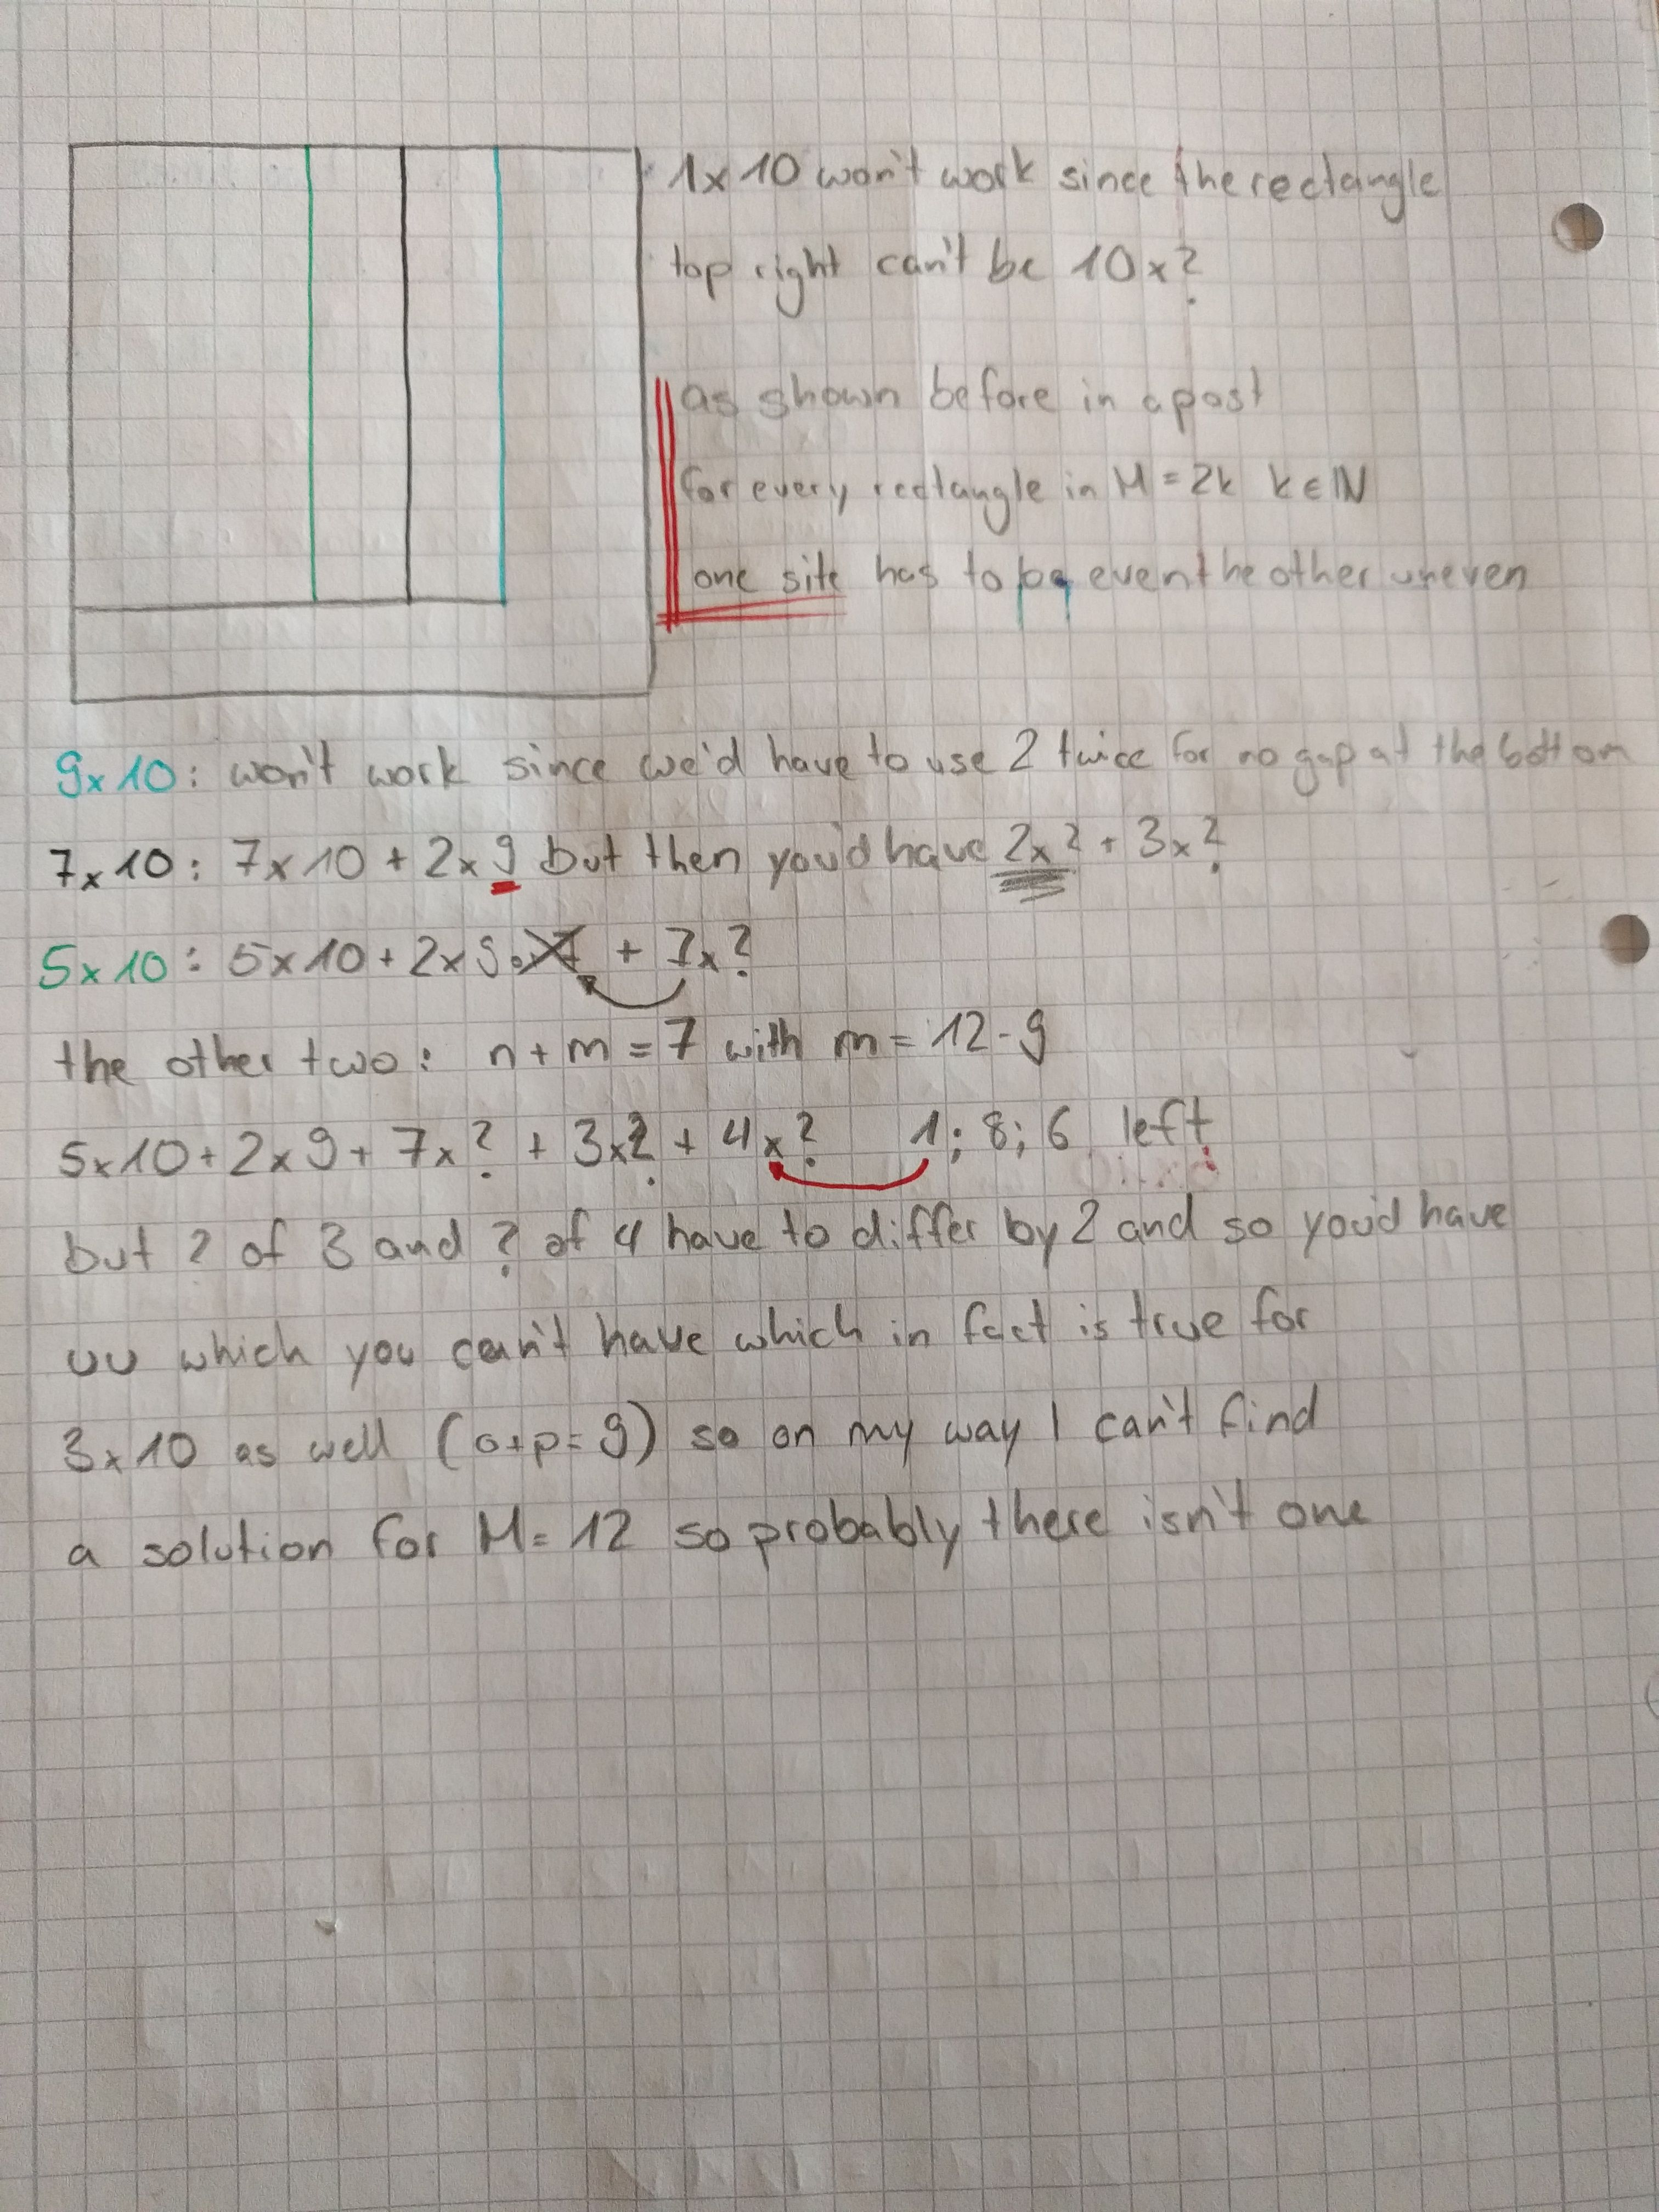 1x10 won't work since the rectangle
top right can't be 10x?
as shown before in a post
for every rectangle in M = 2k k ∈ ℕ
one site has to be even the other uneven
9x10: won't work since we'd have to use 2 twice for no gap at the bottom
7x10: 7x10 + 2x9 but then you'd have 2x? + 3x?
5x10: 5x10 + 2x9 + 7x?
the other two: n+m = 7 with m = 12-9
5x10 + 2x9 + 7x? + 3x? + 4x? 1; 8; 6 left
but ? of 3 and ? of 4 have to differ by 2 and so you'd have
uu which you can't have which in fact is true for
3x10 as well (o+p= 9) so on my way I can't find
a solution for M= 12 so probably there isn't one